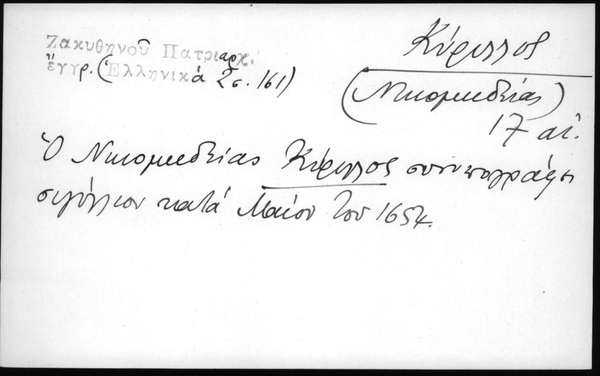 Ζακυθηνοῦ Πατριαρχ.
ἔγγρ. (Ἑλληνικά 2 σ. 161)
Κύριλλος
(Νικομηδείας)
17 αἰ.
Ὁ Νικομηδείας Κύριλλος συνυπογράφει
σιγίλλιον κατά Μαΐον του 1654.